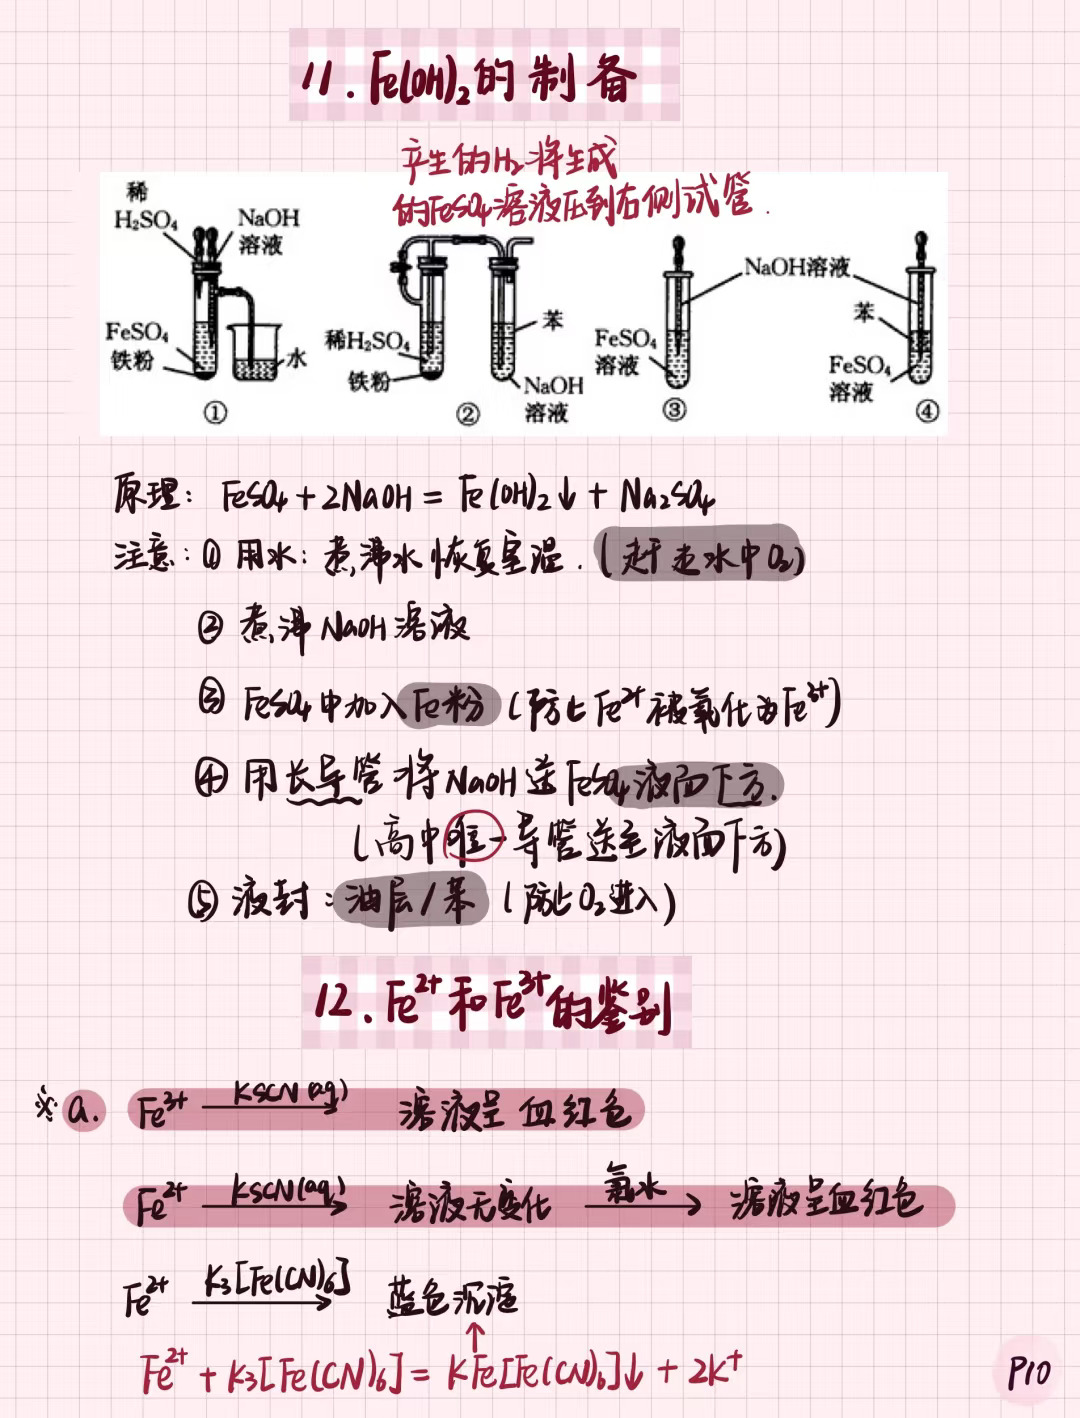 11. Fe(OH)₂的制备
产生的H₂将生成
的FeSO₄溶液压到右侧试管.
稀
H₂SO₄
NaOH
溶液
FeSO₄
铁粉
水
①
稀H₂SO₄
铁粉
苯
NaOH
溶液
②
FeSO₄
溶液
③
NaOH溶液
苯
FeSO₄
溶液
④
原理: FeSO₄+2NaOH=Fe(OH)₂↓+Na₂SO₄
注意:①用水:煮沸水恢复室温.(赶走水中O₂)
②煮沸NaOH溶液
③FeSO₄中加入Fe粉(防止Fe²⁺被氧化为Fe³⁺)
④用长导管将NaOH送FeSO₄液面下方.
(高中唯一导管送至液面下方)
⑤液封:油层/苯(防止O₂进入)
12. Fe²⁺和Fe³⁺的鉴别
※a. Fe³⁺ KSCN(aq)→ 溶液呈血红色
Fe²⁺ KSCN(aq)→ 溶液无变化 氯水→ 溶液呈血红色
Fe²⁺ K₃[Fe(CN)₆]→ 蓝色沉淀
↑
Fe²⁺+K₃[Fe(CN)₆]=KFe[Fe(CN)₆]↓+2K⁺
P10